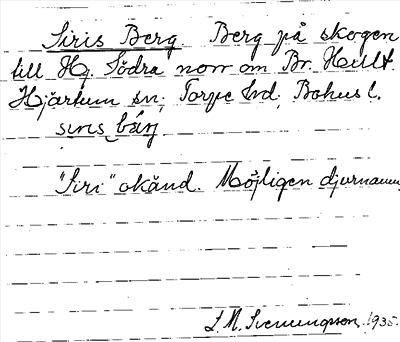 Siris Berg. Berg på skogen
till Hg. Södra norr om Br. Hult.
Hjärtum sn, Torpe hd, Bohus l.
siris bärj
"Siri" okänd. Möjligen djurnamn
L. M. Svenungsson 1935.